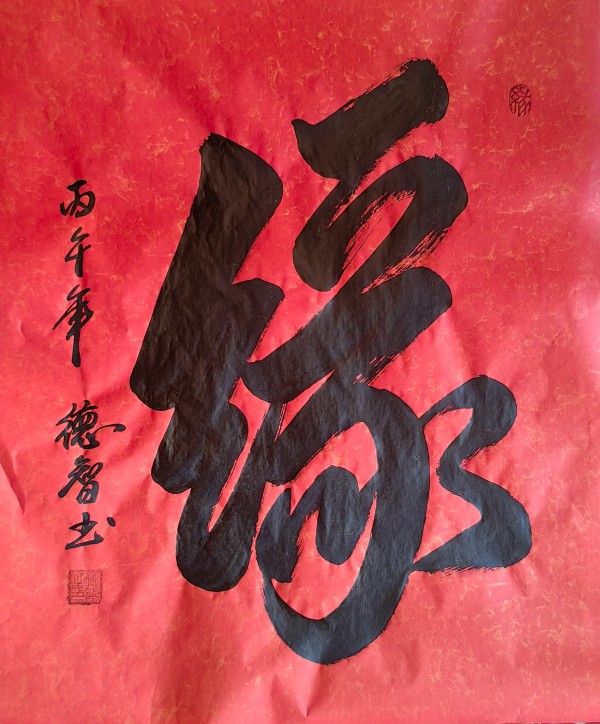 缘
丙午年 德智书